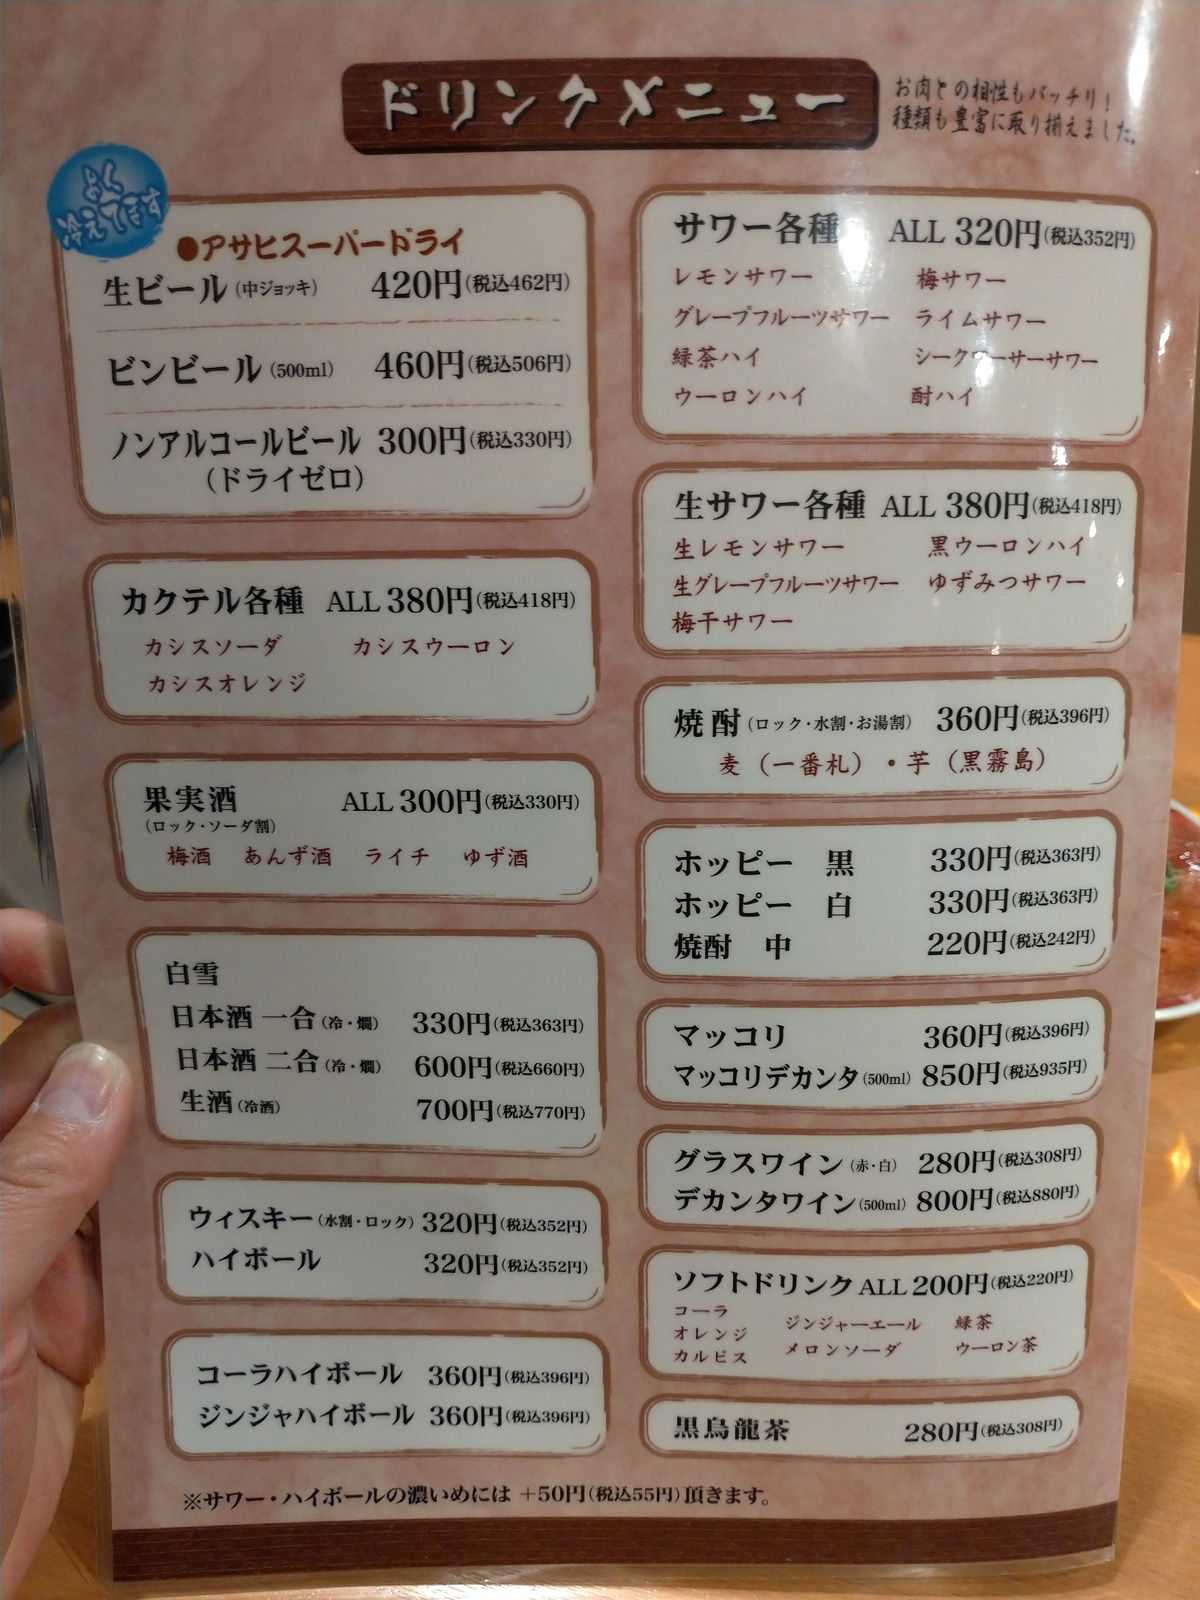 ドリンクメニュー
お肉との相性もバッチリ!
種類も豊富に取り揃えました。
よく
冷えてます
●アサヒスーパードライ
生ビール(中ジョッキ) 420円(税込462円)
ビンビール(500ml) 460円(税込506円)
ノンアルコールビール 300円(税込330円)
(ドライゼロ)
カクテル各種 ALL 380円(税込418円)
カシスソーダ カシスウーロン
カシスオレンジ
果実酒 ALL 300円(税込330円)
(ロック・ソーダ割)
梅酒 あんず酒 ライチ ゆず酒
白雪
日本酒 一合(冷・燗) 330円(税込363円)
日本酒 二合(冷・燗) 600円(税込660円)
生酒(冷酒) 700円(税込770円)
ウィスキー(水割・ロック) 320円(税込352円)
ハイボール 320円(税込352円)
コーラハイボール 360円(税込396円)
ジンジャハイボール 360円(税込396円)
サワー各種 ALL 320円(税込352円)
レモンサワー 梅サワー
グレープフルーツサワー ライムサワー
緑茶ハイ シークワーサーサワー
ウーロンハイ 酎ハイ
生サワー各種 ALL 380円(税込418円)
生レモンサワー 黒ウーロンハイ
生グレープフルーツサワー ゆずみつサワー
梅干サワー
焼酎(ロック・水割・お湯割) 360円(税込396円)
麦(一番札)・芋(黒霧島)
ホッピー 黒 330円(税込363円)
ホッピー 白 330円(税込363円)
焼酎 中 220円(税込242円)
マッコリ 360円(税込396円)
マッコリデカンタ(500ml) 850円(税込935円)
グラスワイン(赤・白) 280円(税込308円)
デカンタワイン(500ml) 800円(税込880円)
ソフトドリンク ALL 200円(税込220円)
コーラ ジンジャーエール 緑茶
オレンジ メロンソーダ ウーロン茶
カルピス
黒烏龍茶 280円(税込308円)
※サワー・ハイボールの濃いめには +50円(税込55円)頂きます。